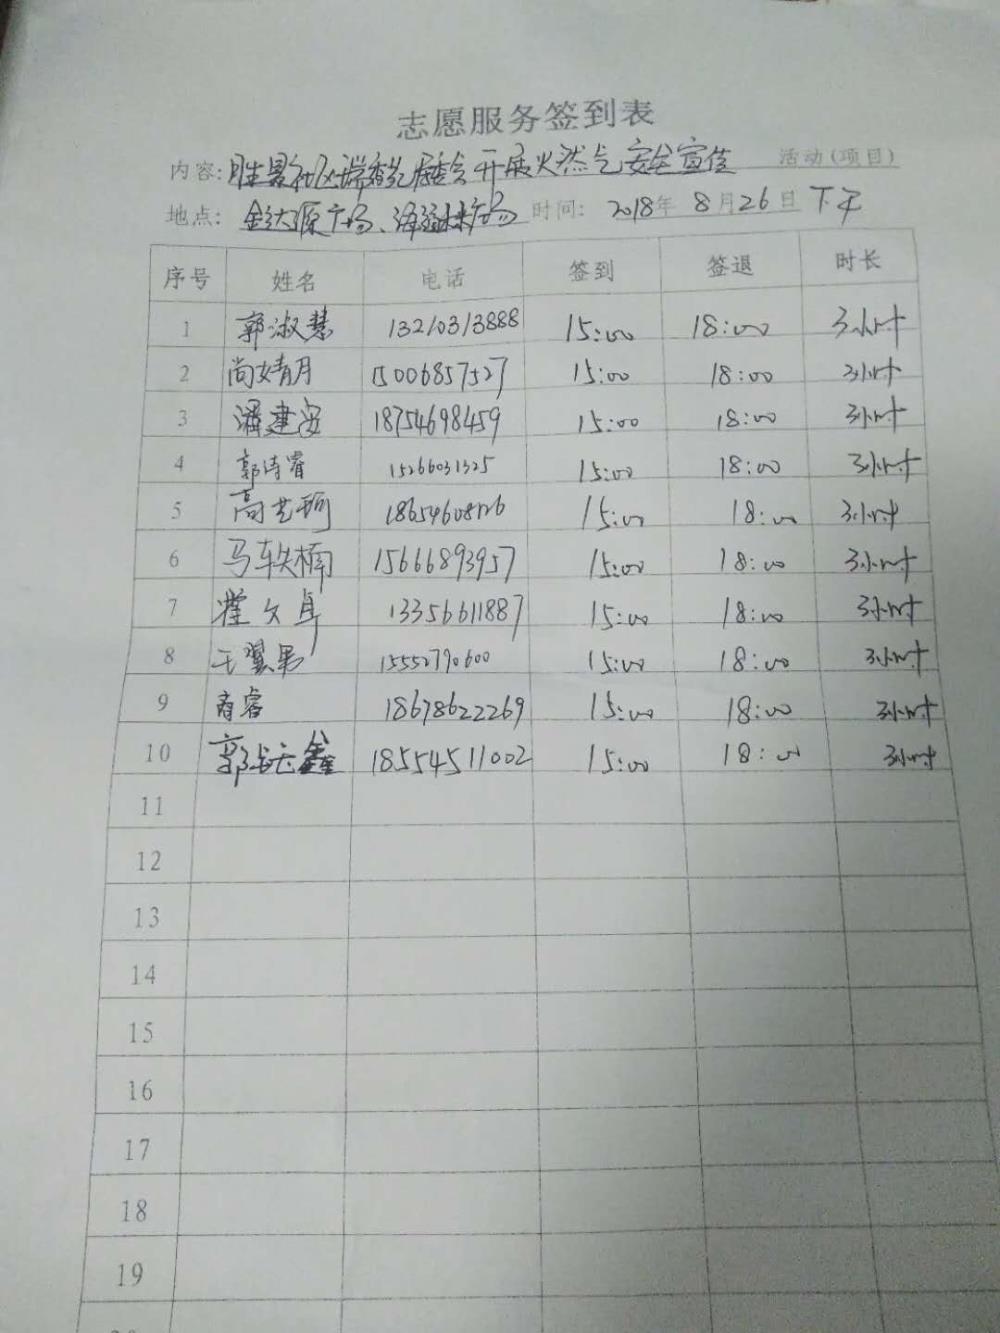 志愿服务签到表
内容: 胜景社区瑞香苑居委会开展火然气安全宣传 活动(项目)
地点: 金达源广场、 时间: 2018年 8月26日 下午
序号 姓名 电话 签到 签退 时长
1 郭淑慧 13210313888 15:00 18:00 3小时
2 尚婧月 15006857527 15:00 18:00 3小时
3 潘建安 18754698459 15:00 18:00 3小时
4 郭诗睿 15266031325 15:00 18:00 3小时
5 高艺珂 15:00 18:00 3小时
6 马轶楠 15666893957 15:00 18:00 3小时
7 翟文卓 13356611887 15:00 18:00 3小时
8 王翼男 15552790600 15:00 18:00 3小时
9 商睿 18678622269 15:00 18:00 3小时
10 18554511002 15:00 18:00 3小时
11
12
13
14
15
16
17
18
19